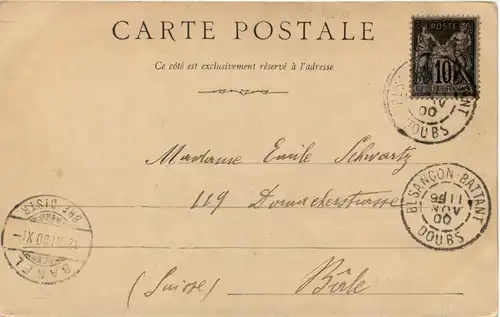 CARTE POSTALE
Ce côté est exclusivement réservé à l'adresse
POSTE
10
BESANÇON-BATTANT
00
DOUBS
Madame Emile Schwartz
119 Dornacherstrasse
BESANÇON-BATTANT
11 E 56
AVRIL
00
DOUBS
BRF. DISTR
BASEL
(Suisse) Bâle